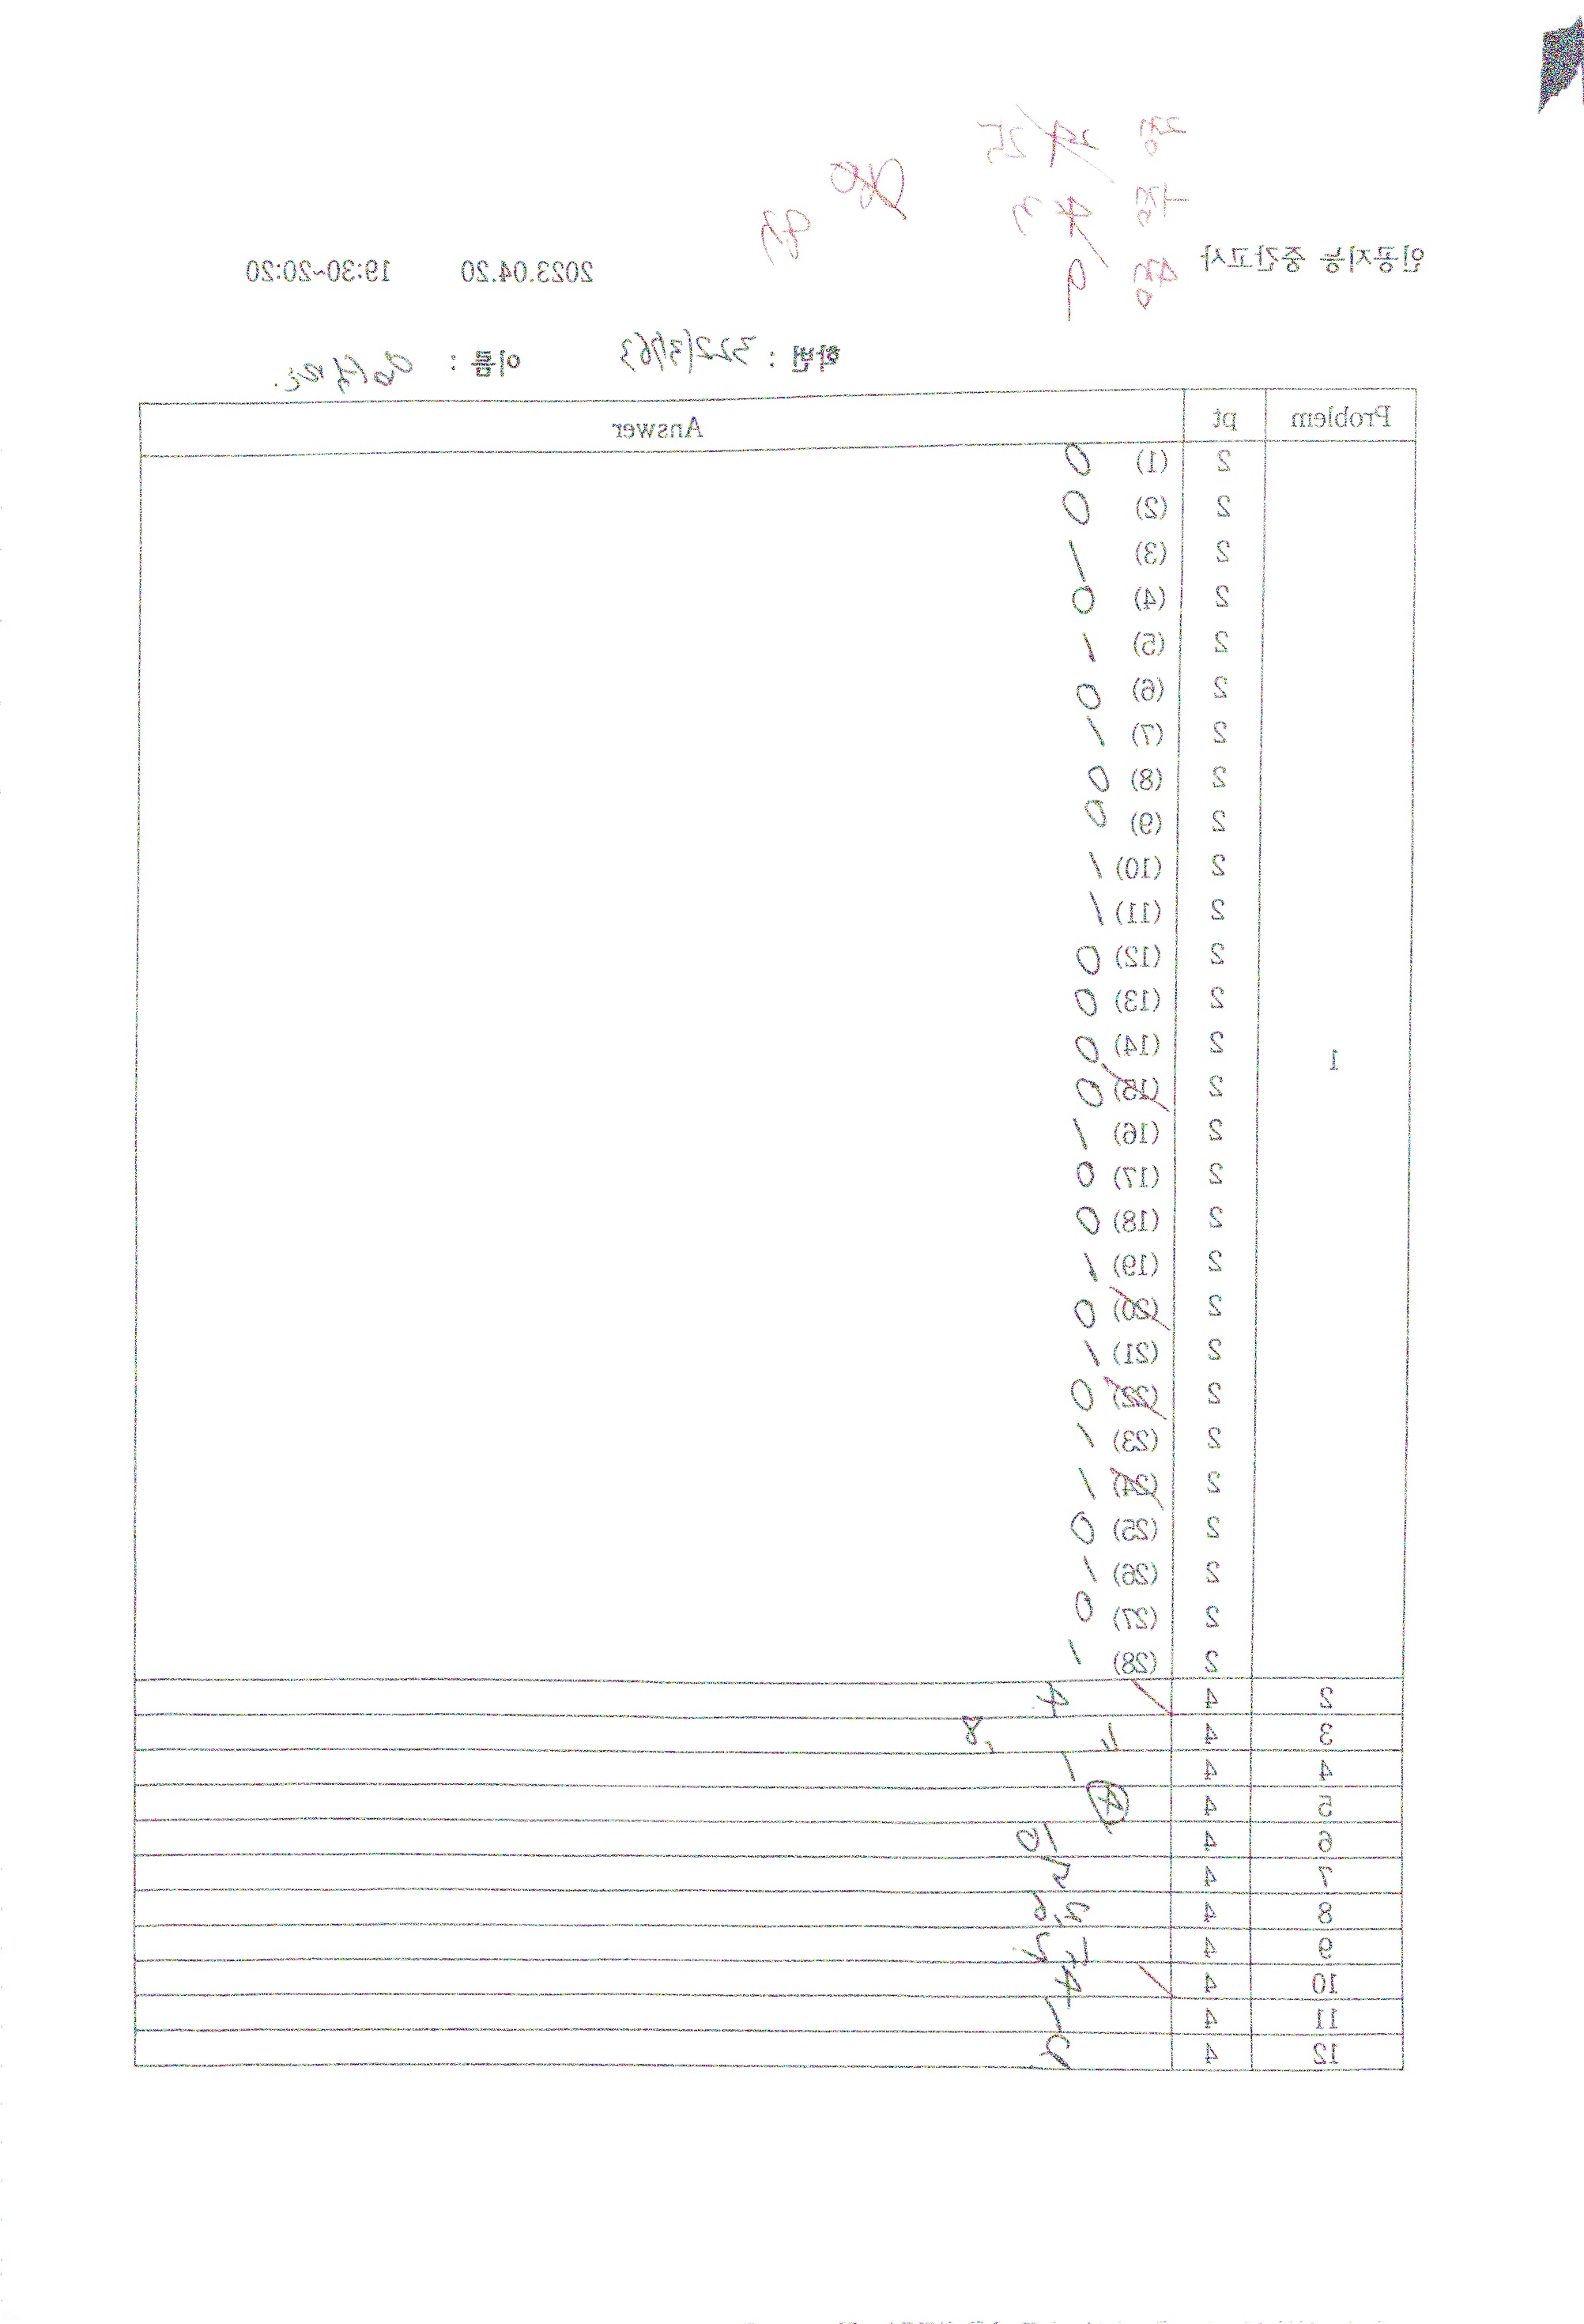 인공지능 중간고사 2023.04.20 19:30~20:20
학번 : 32213763 이름 :
Problem pt Answer
1
2 (1) 0
2 (2) 0
2 (3) 1
2 (4) 0
2 (5) 1
2 (6) 0
2 (7) 1
2 (8) 0
2 (9) 0
2 (10) 1
2 (11) 1
2 (12) 0
2 (13) 0
2 (14) 0
2 (15) 0
2 (16) 1
2 (17) 0
2 (18) 0
2 (19) 1
2 (20) 0
2 (21) 1
2 (22) 0
2 (23) 1
2 (24) 1
2 (25) 0
2 (26) 1
2 (27) 0
2 (28) 1
2 4 4
3 4 11, 8
4 4 1
5 4 4
6 4 10
7 4
8 4
9 4
10 4 4
11 4 1
12 4